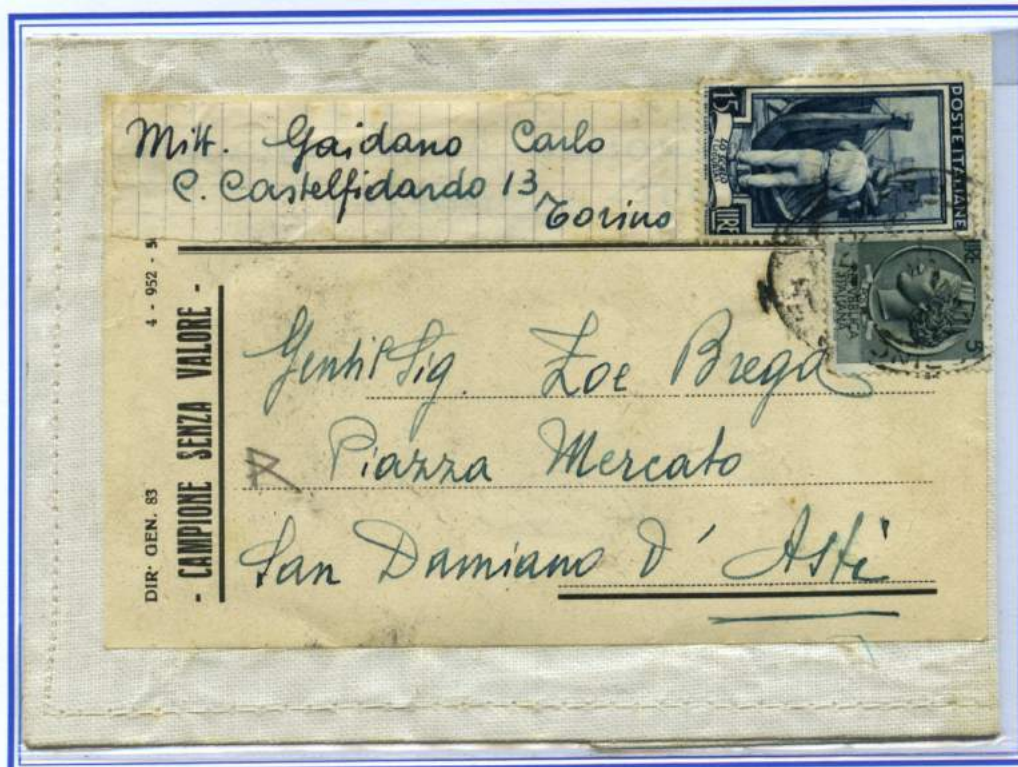 Mitt. Gaidano Carlo
C. Castelfidardo 13
Torino
POSTE ITALIANE
15
LIRE
LIRE
5
DIR. GEN. 83
4 - 952 - 5
- CAMPIONE SENZA VALORE -
Gentil Sig. Zoe Brega
Piazza Mercato
San Damiano d' Asti